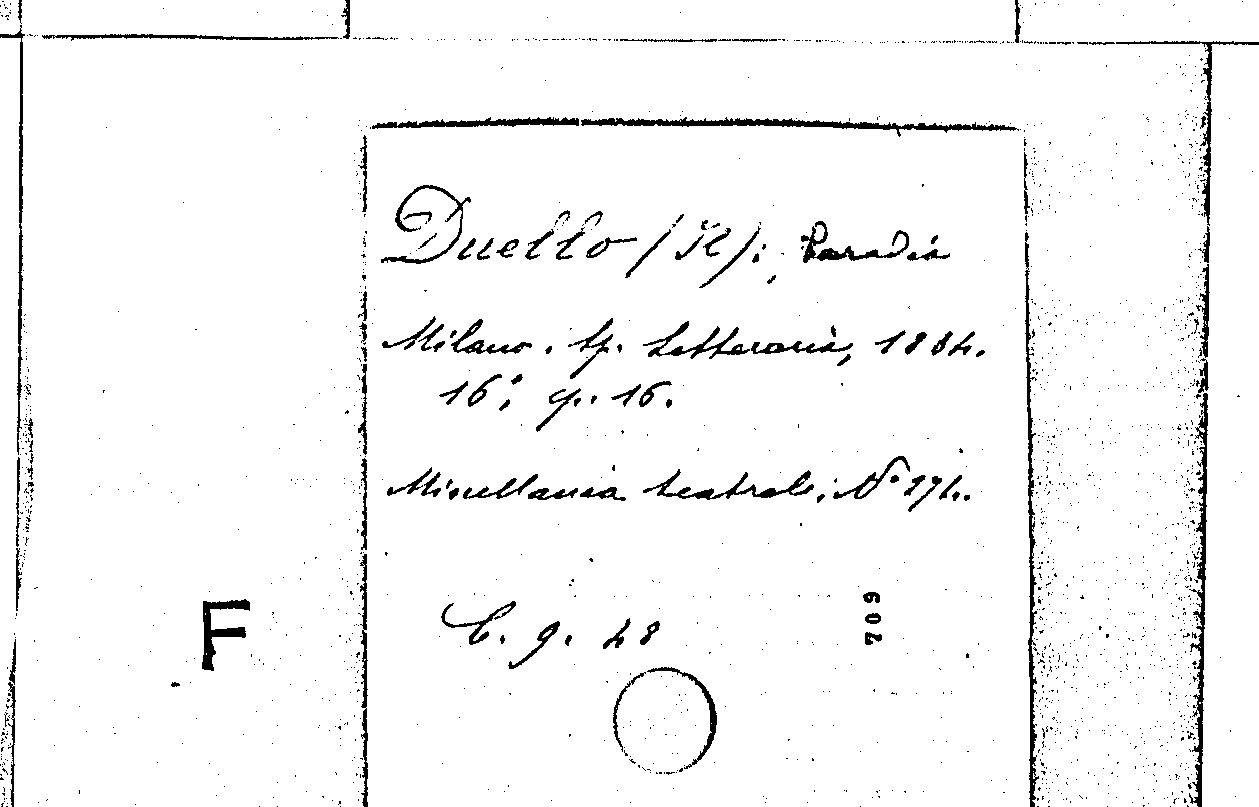 Duello (Il): Parodia
Milano. tip. Letteraria, 1884.
16°; p. 16.
Miscellanea teatrale; N° 274.
C. g. 48
709
F